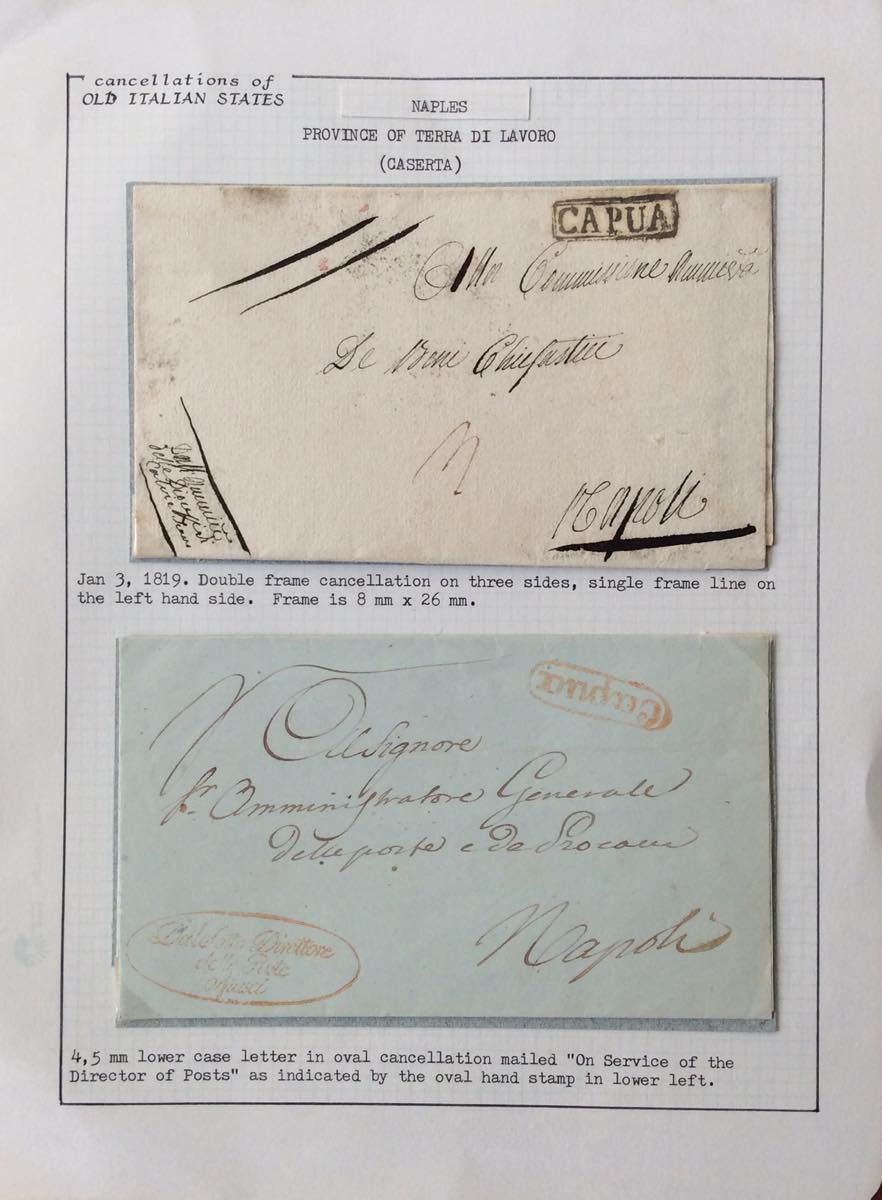 cancellations of
OLD ITALIAN STATES
NAPLES
PROVINCE OF TERRA DI LAVORO
(CASERTA)
CAPUA
Alla Commissione
De Beni
Napoli
Jan 3, 1819. Double frame cancellation on three sides, single frame line on
the left hand side. Frame is 8 mm x 26 mm.
Capua
Al Signore
Sr Amministratore Generale
delle poste e de Procacci
Napoli
Dal Direttore
Poste
4,5 mm lower case letter in oval cancellation mailed "On Service of the
Director of Posts" as indicated by the oval hand stamp in lower left.